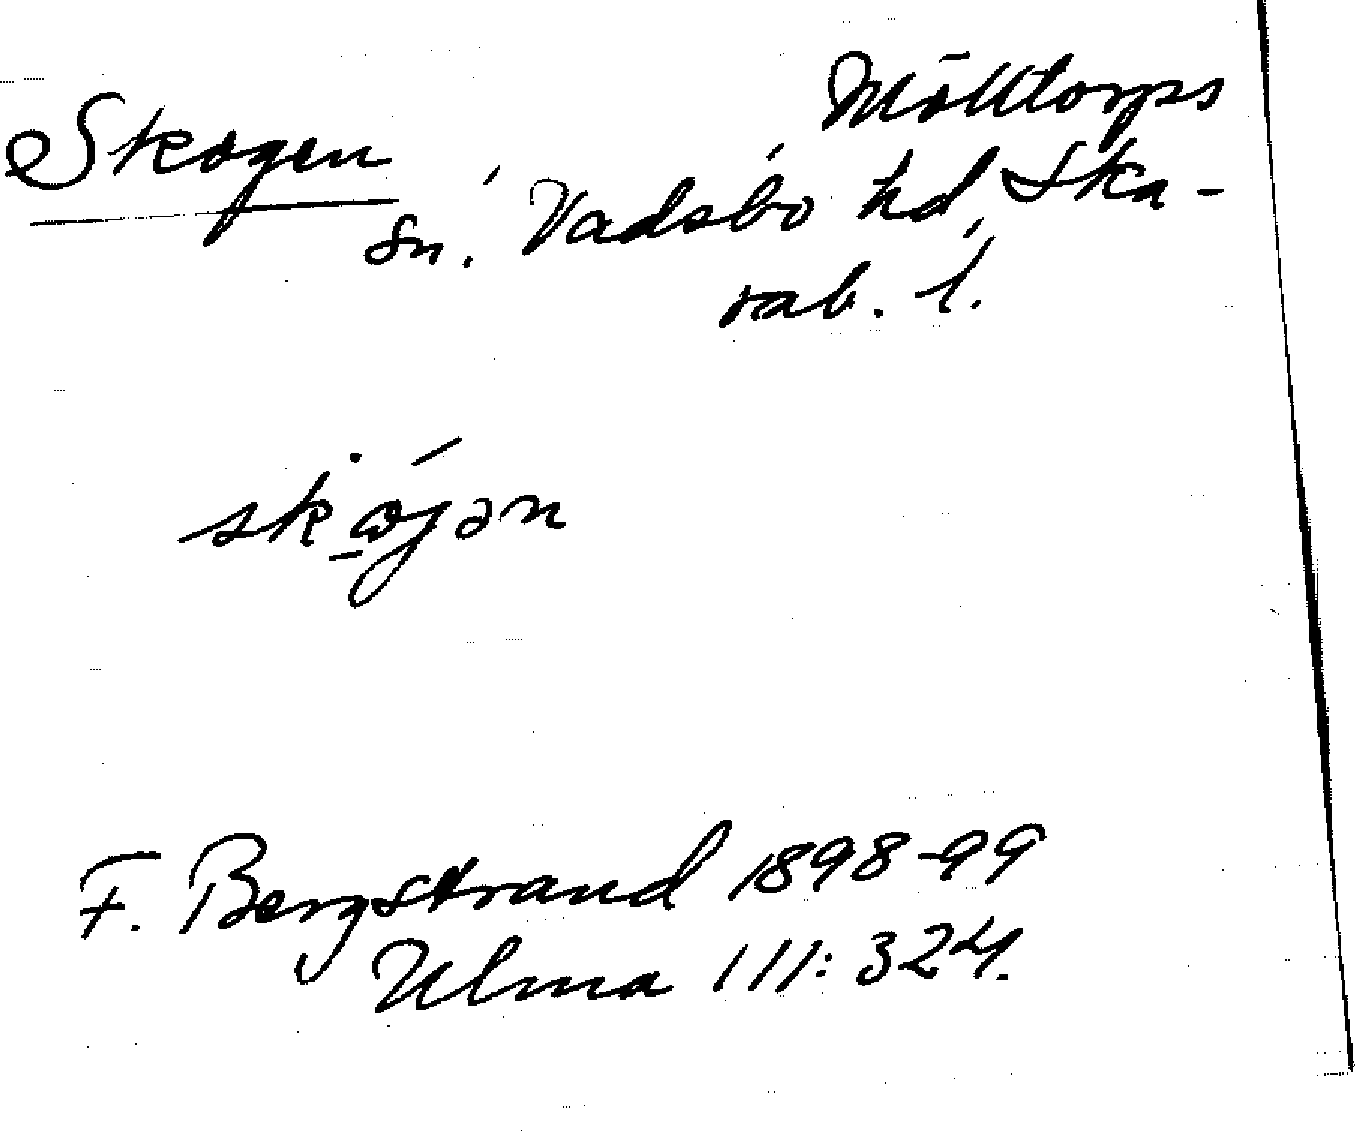 Skogen
Mölltorps
sn. Vadsbo hd, Ska-
rab. l.
F. Bergstrand 1898-99
Ulma 111:324.